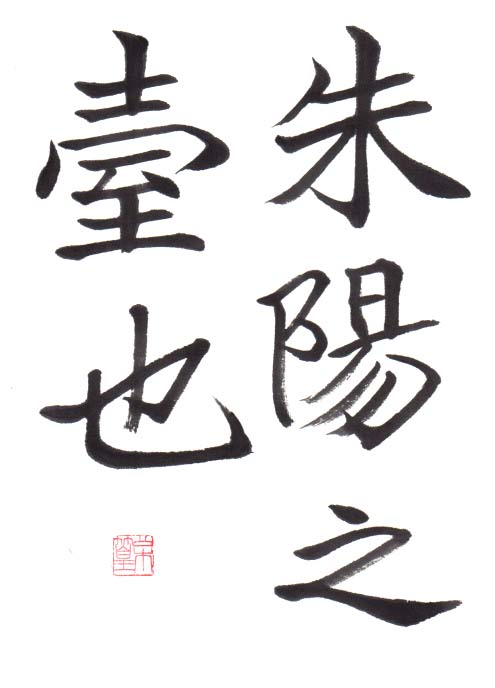 朱陽之
臺也